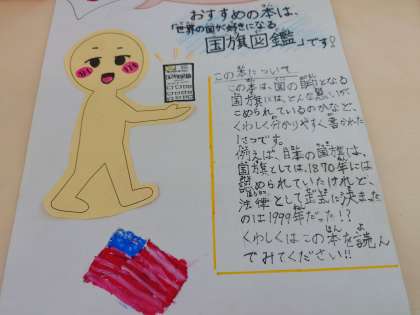 おすすめの本は、
「世界の国が好きになる
国旗図鑑」です!
この本について
この本は、国の顔となる
国旗には、どんな思いが
こめられているのかなど、
くわしく分かりやすく書かれた
1さつです。
例えば、日本の国旗は、
国旗としては、1870年には
認められていたけれど、
法律として正式に決まった
のは1999年だった!?
くわしくはこの本を読ん
でみてください!!